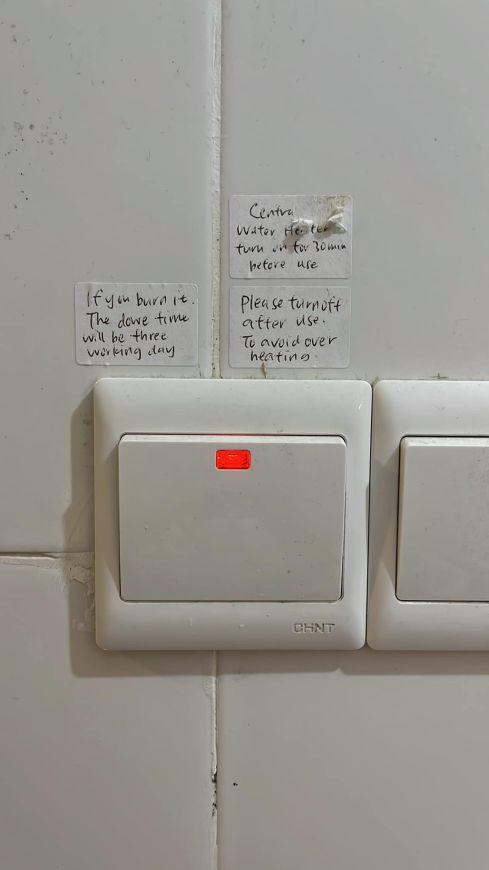 Centra
Water Heater
turn on for 30 min
before use
If you burn it.
The dowe time
will be three
working day
Please turn off
after use.
To avoid over
heating.
CHNT